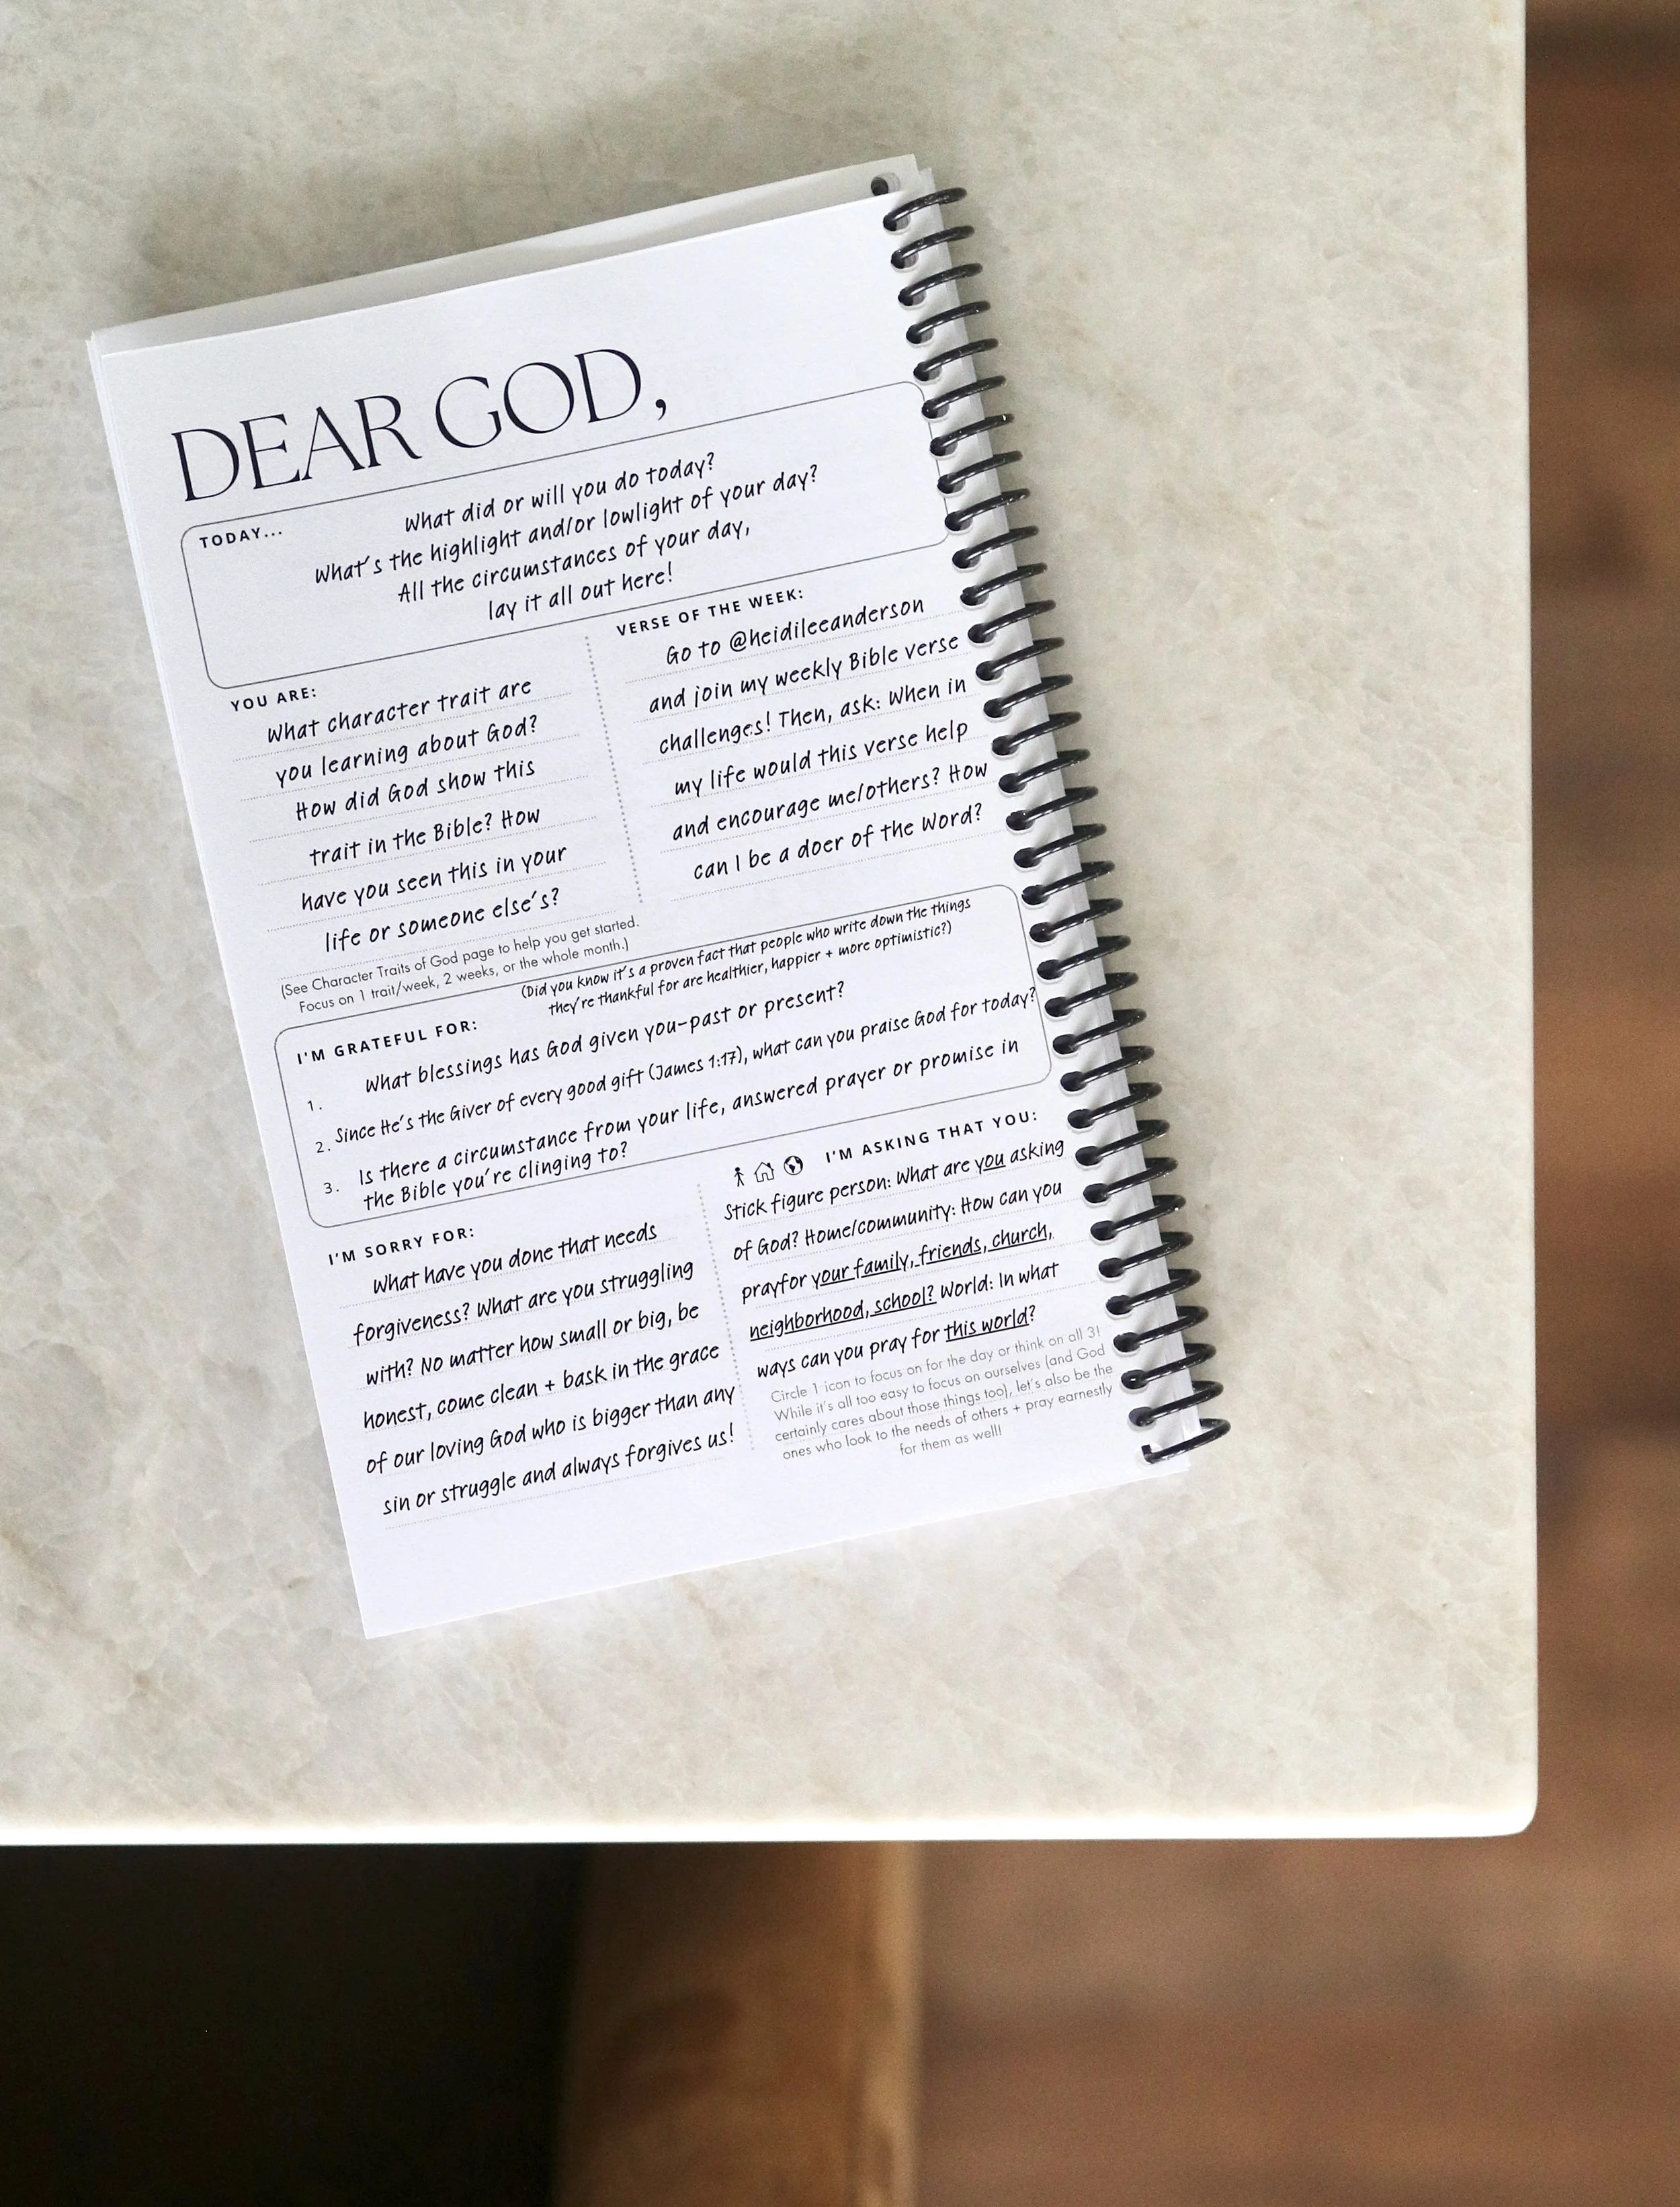 DEAR GOD,
TODAY...
What did or will you do today?
What's the highlight and/or lowlight of your day?
All the circumstances of your day,
lay it all out here!
YOU ARE:
What character trait are
you learning about God?
How did God show this
trait in the Bible? How
have you seen this in your
life or someone else's?
(See Character Traits of God page to help you get started.
Focus on 1 trait/week, 2 weeks, or the whole month.)
VERSE OF THE WEEK:
Go to @heidileeanderson
and join my weekly Bible verse
challenges! Then, ask: When in
my life would this verse help
and encourage me/others? How
can I be a doer of the Word?
(Did you know it's a proven fact that people who write down the things
they're thankful for are healthier, happier + more optimistic?)
I'M GRATEFUL FOR:
1. What blessings has God given you-past or present?
2. Since He's the Giver of every good gift (James 1:17), what can you praise God for today?
3. Is there a circumstance from your life, answered prayer or promise in
the Bible you're clinging to?
I'M SORRY FOR:
What have you done that needs
forgiveness? What are you struggling
with? No matter how small or big, be
honest, come clean + bask in the grace
of our loving God who is bigger than any
sin or struggle and always forgives us!
I'M ASKING THAT YOU:
Stick figure person: What are you asking
of God? Home/community: How can you
prayfor your family, friends, church,
neighborhood, school? World: In what
ways can you pray for this world?
Circle 1 icon to focus on for the day or think on all 3!
While it's all too easy to focus on ourselves (and God
certainly cares about those things too), let's also be the
ones who look to the needs of others + pray earnestly
for them as well!